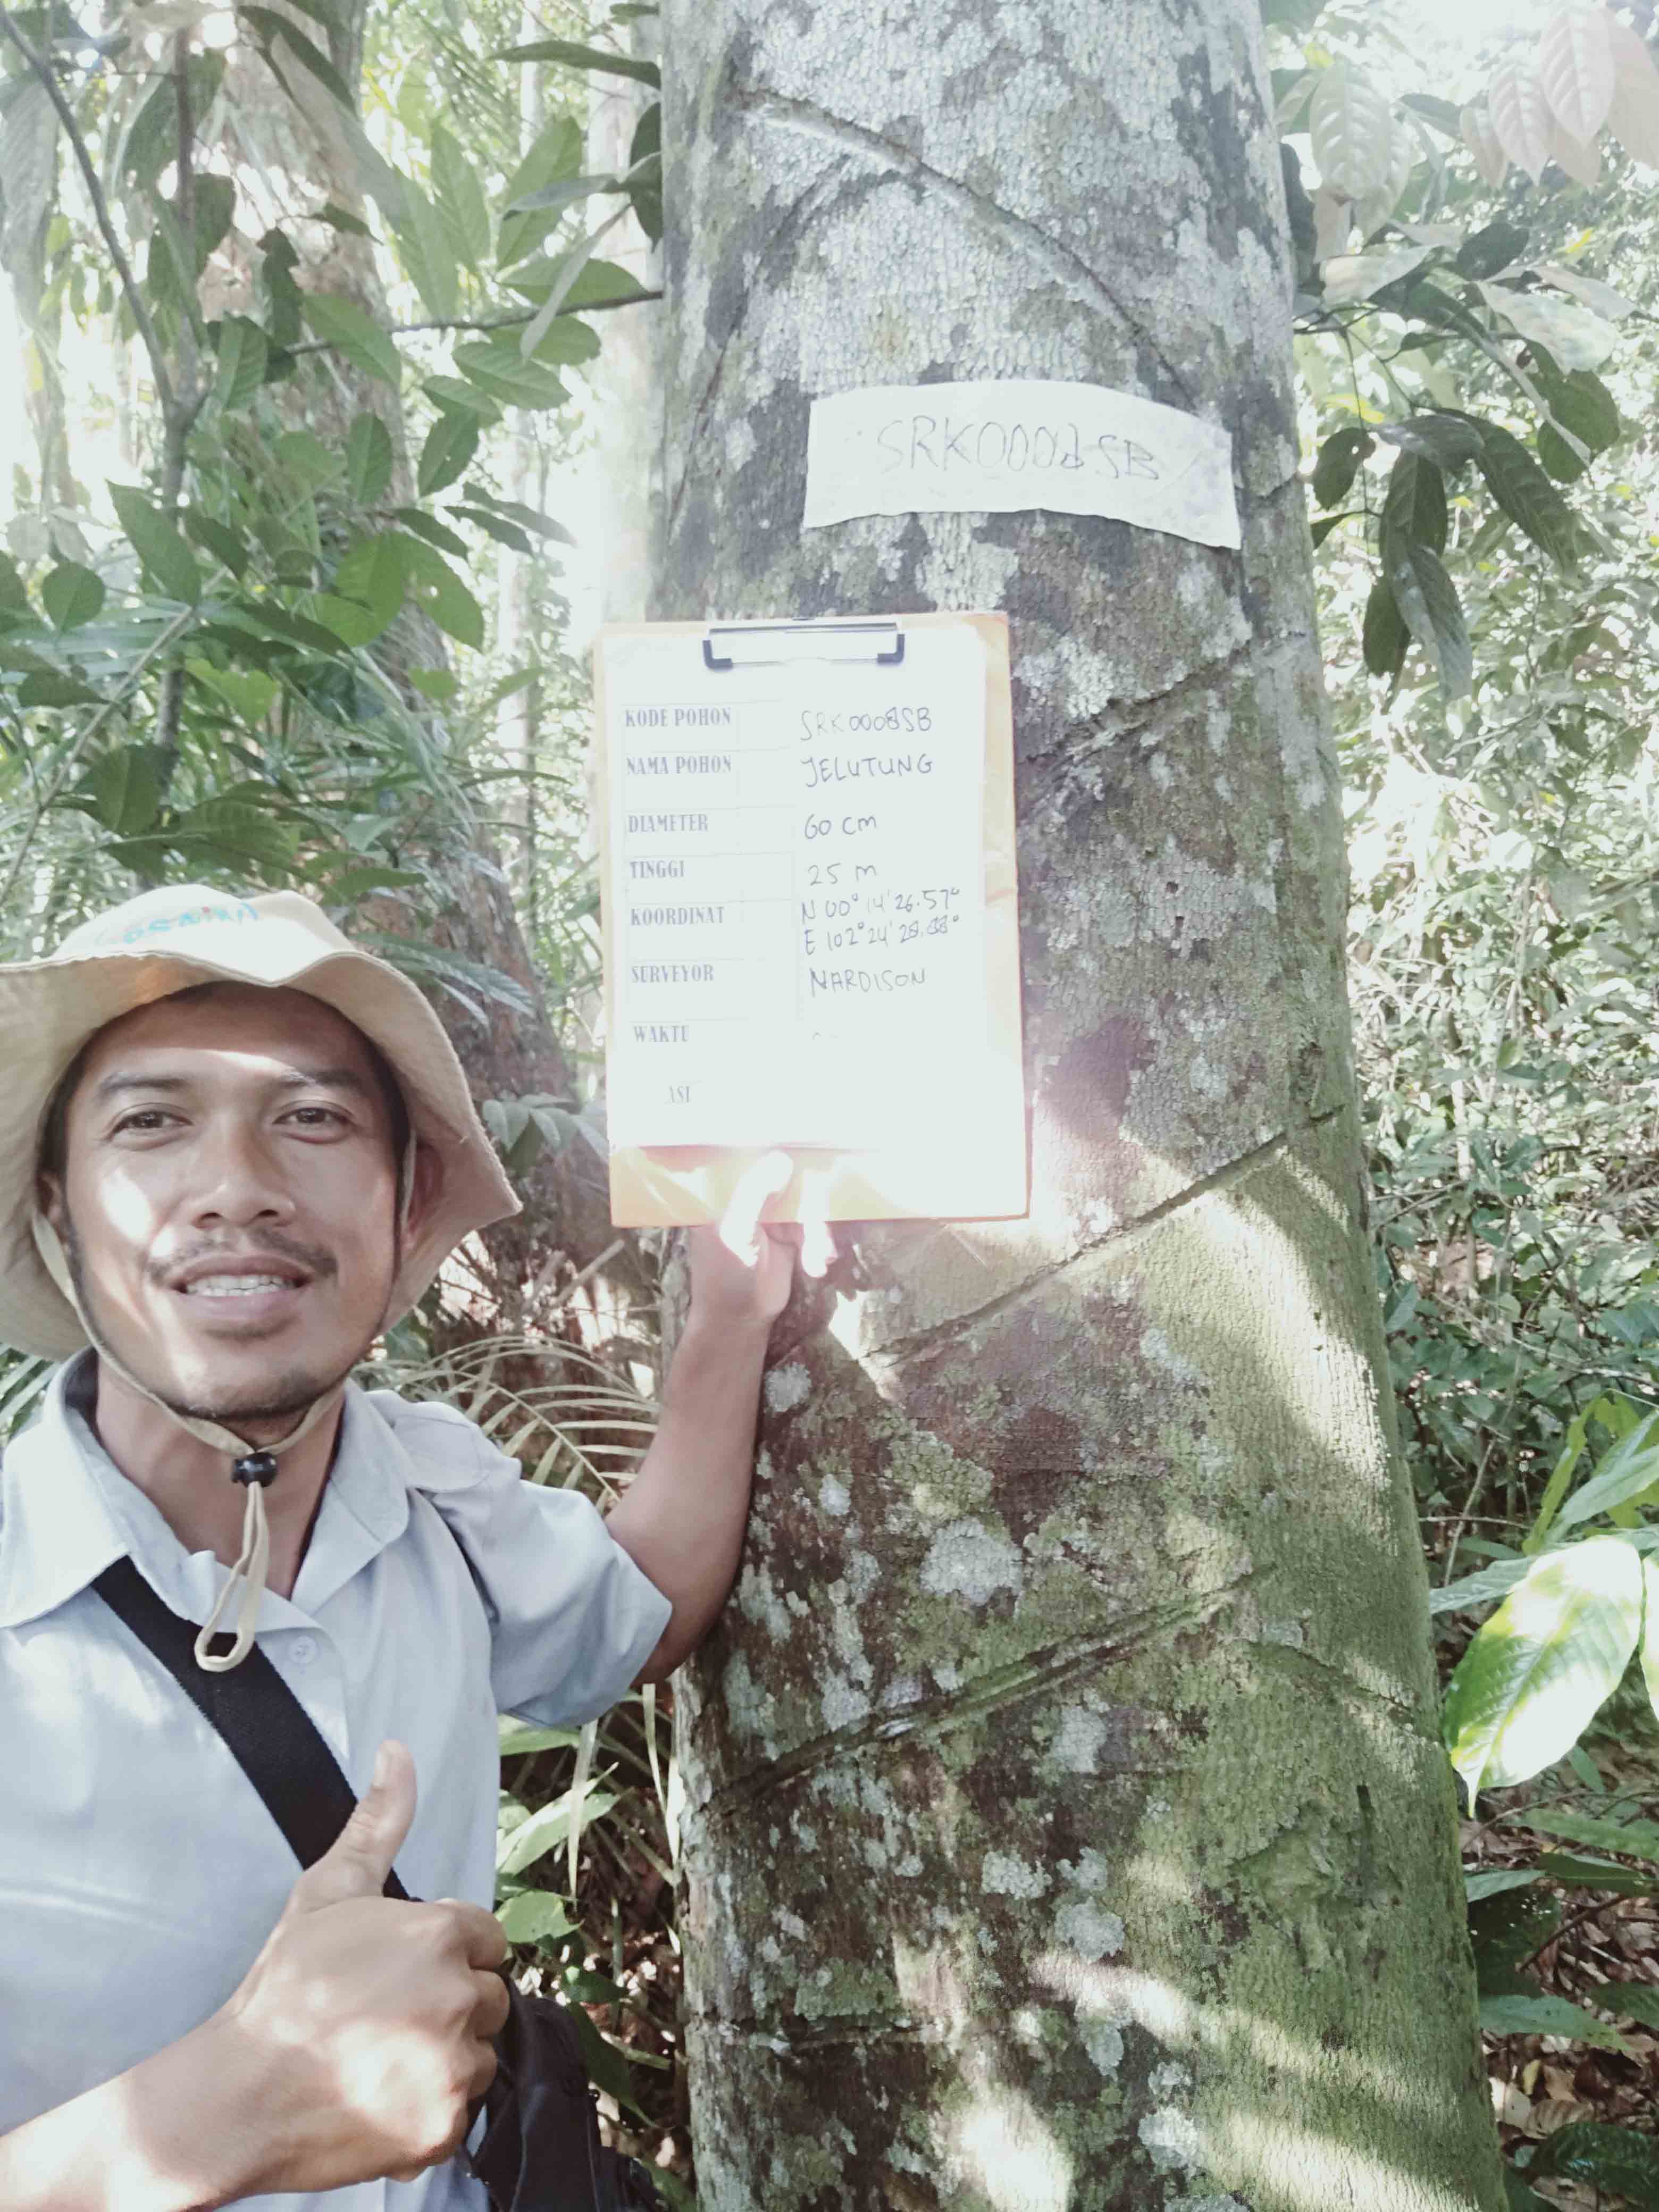 SRK0008SB
KODE POHON SRK0008SB
NAMA POHON JELUTUNG
DIAMETER 60 cm
TINGGI 25 m
KOORDINAT N 00° 14' 26.57"
E 102° 24' 28.88"
SURVEYOR NARDISON
WAKTU